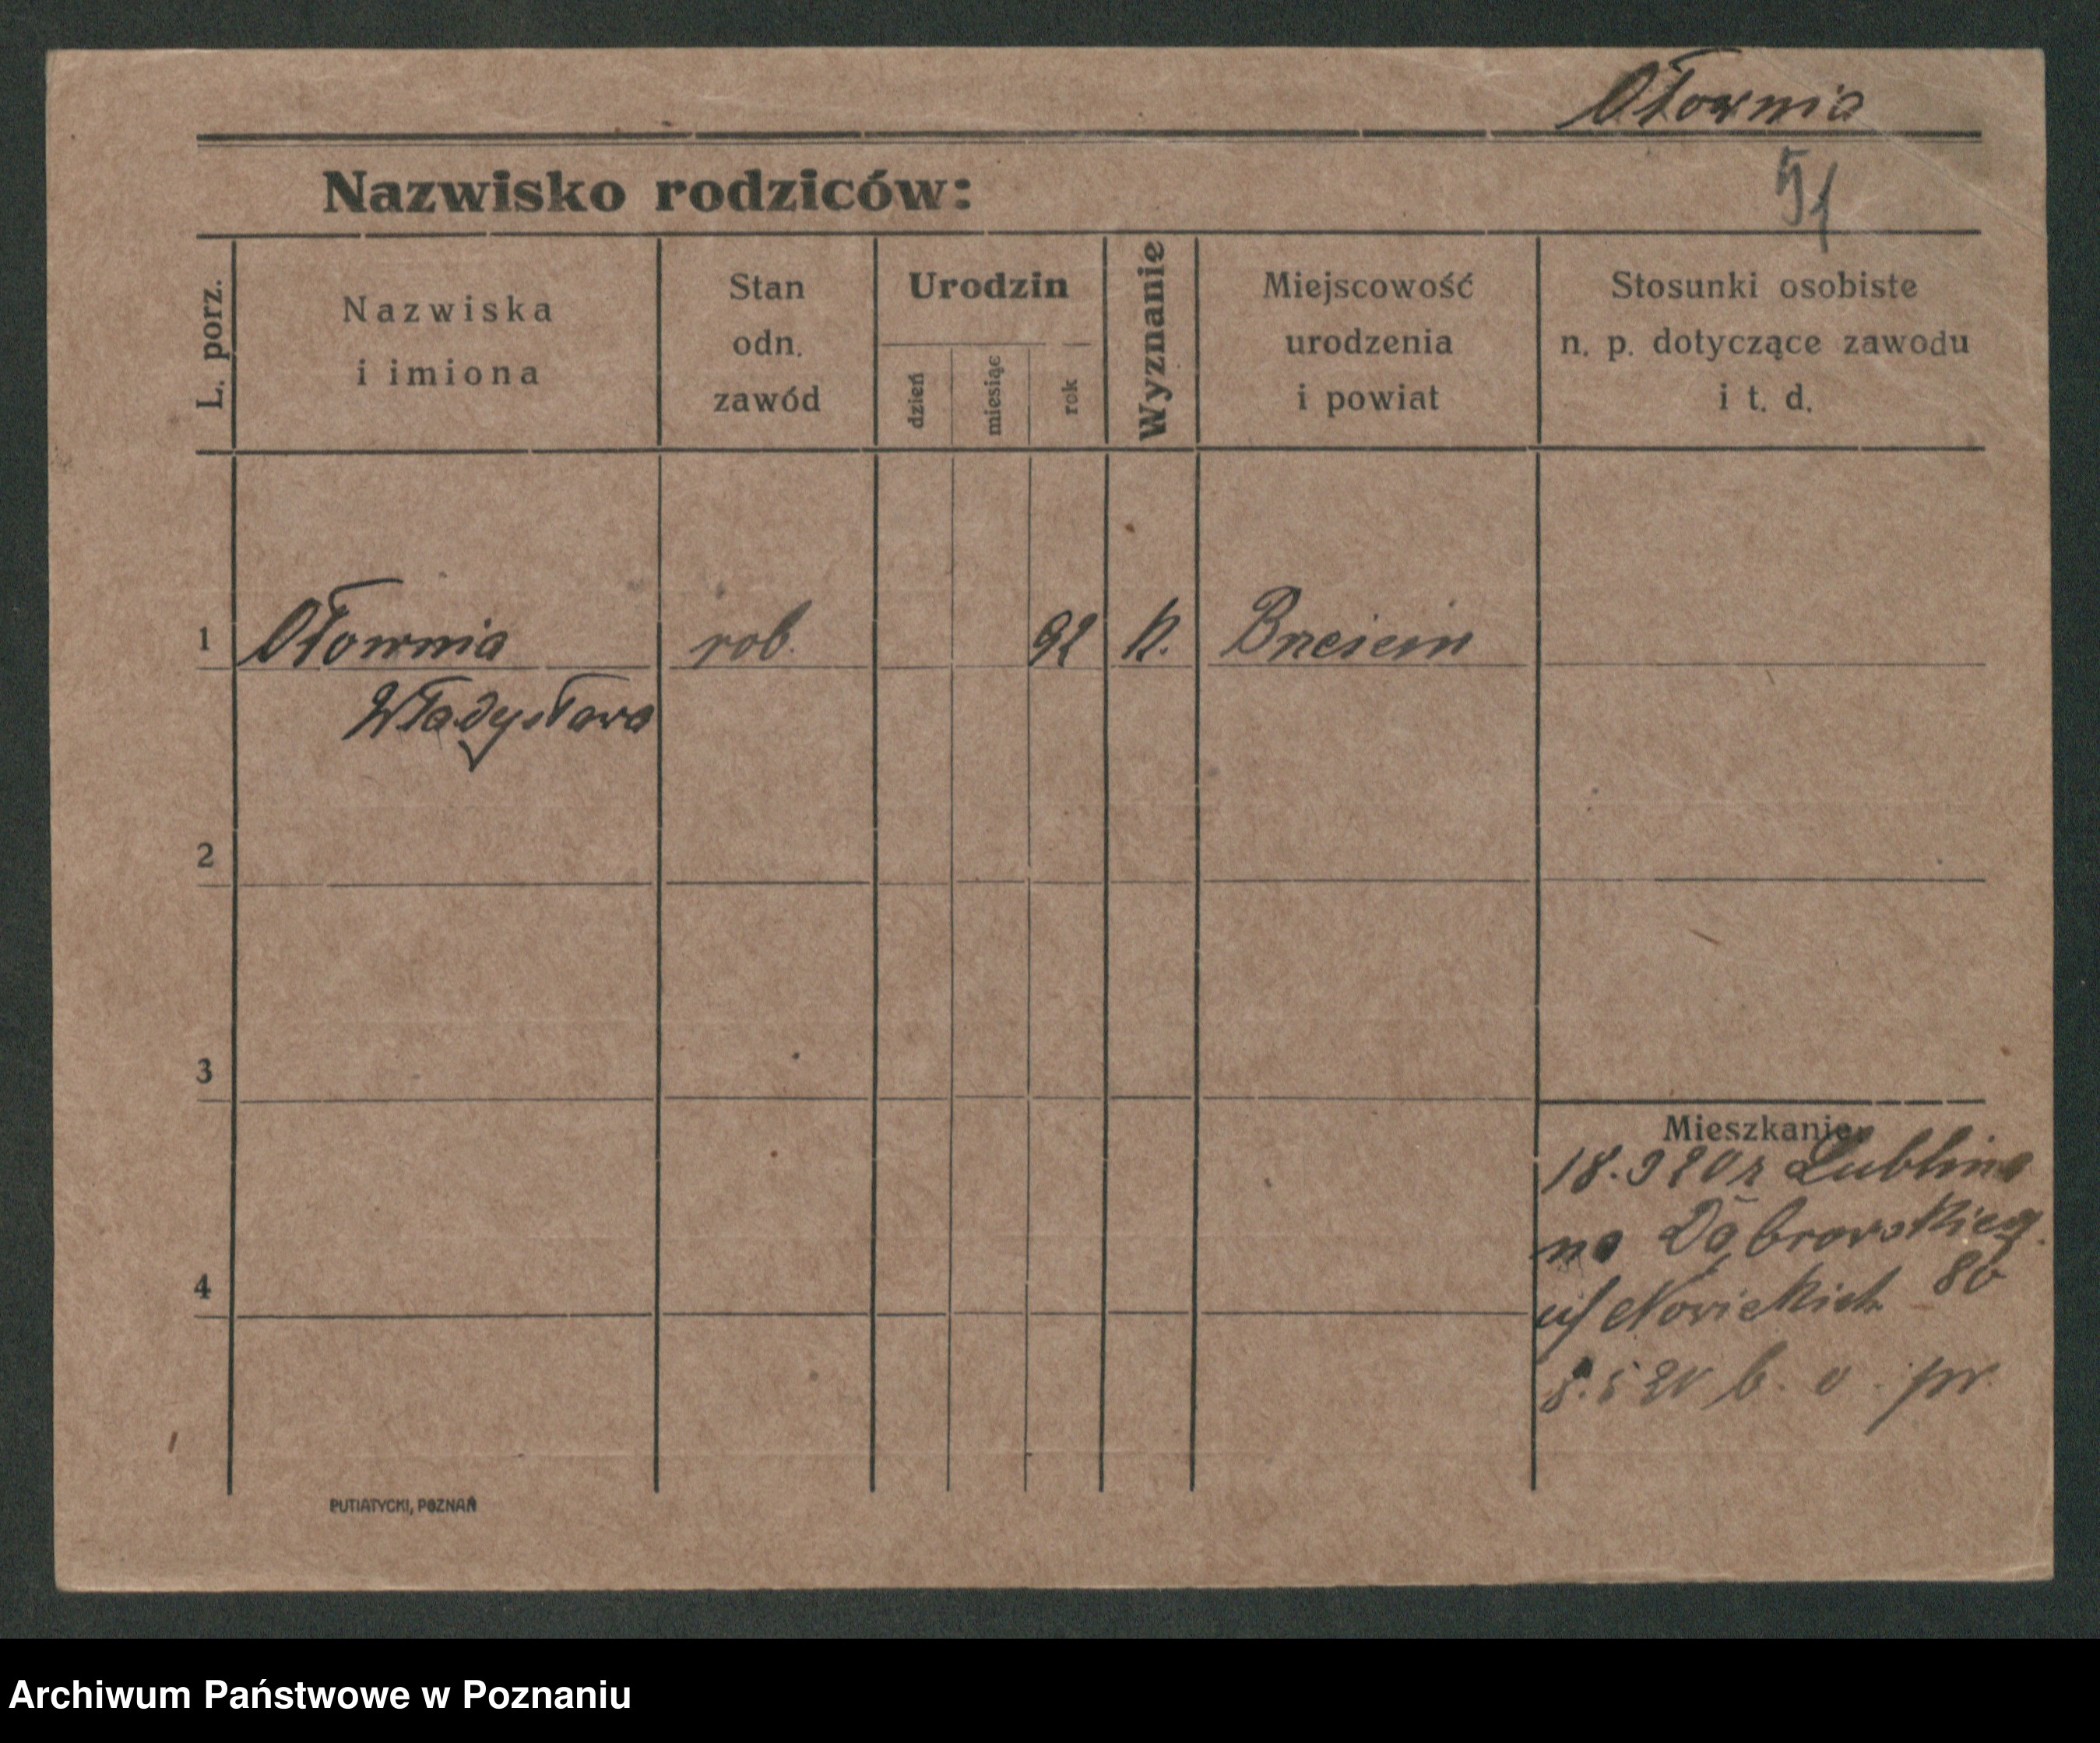 Ołownia
51
Nazwisko rodziców:
L. porz.
Nazwiska
i imiona
Stan
odn.
zawód
Urodzin
dzień
miesiąc
rok
Wyznanie
Miejscowość
urodzenia
i powiat
Stosunki osobiste
n. p. dotyczące zawodu
i t. d.
1 Ołownia rob. 92 k.
Władysława
2
3
4
Mieszkanie.
18.3 20 z Lublina
na Dąbrowskieg.
u/ Nowickich 80
5 20 b. o. pr.
PUTIATYCKI, POZNAŃ
Archiwum Państwowe w Poznaniu